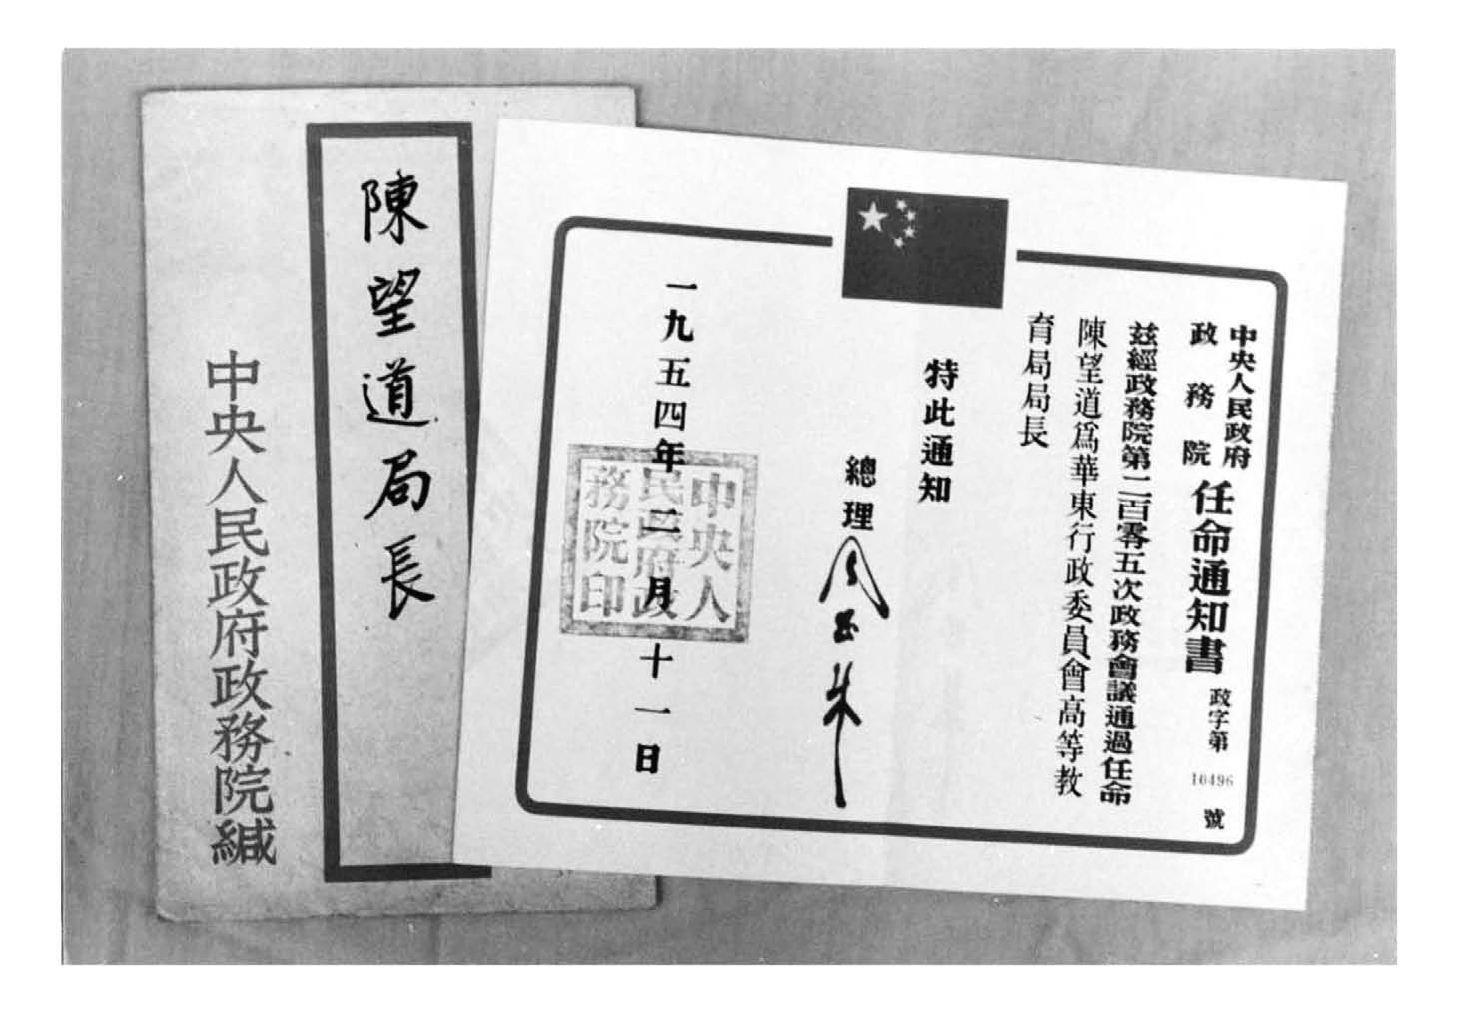 陳望道局長
中央人民政府政務院緘
中央人民政府
政務院
任命通知書
政字第10496號
茲經政務院第二百零五次政務會議通過任命
陳望道爲華東行政委員會高等教
育局局長
特此通知
總理
周恩來
一九五四年二月十一日
中央人
民政府政
務院印